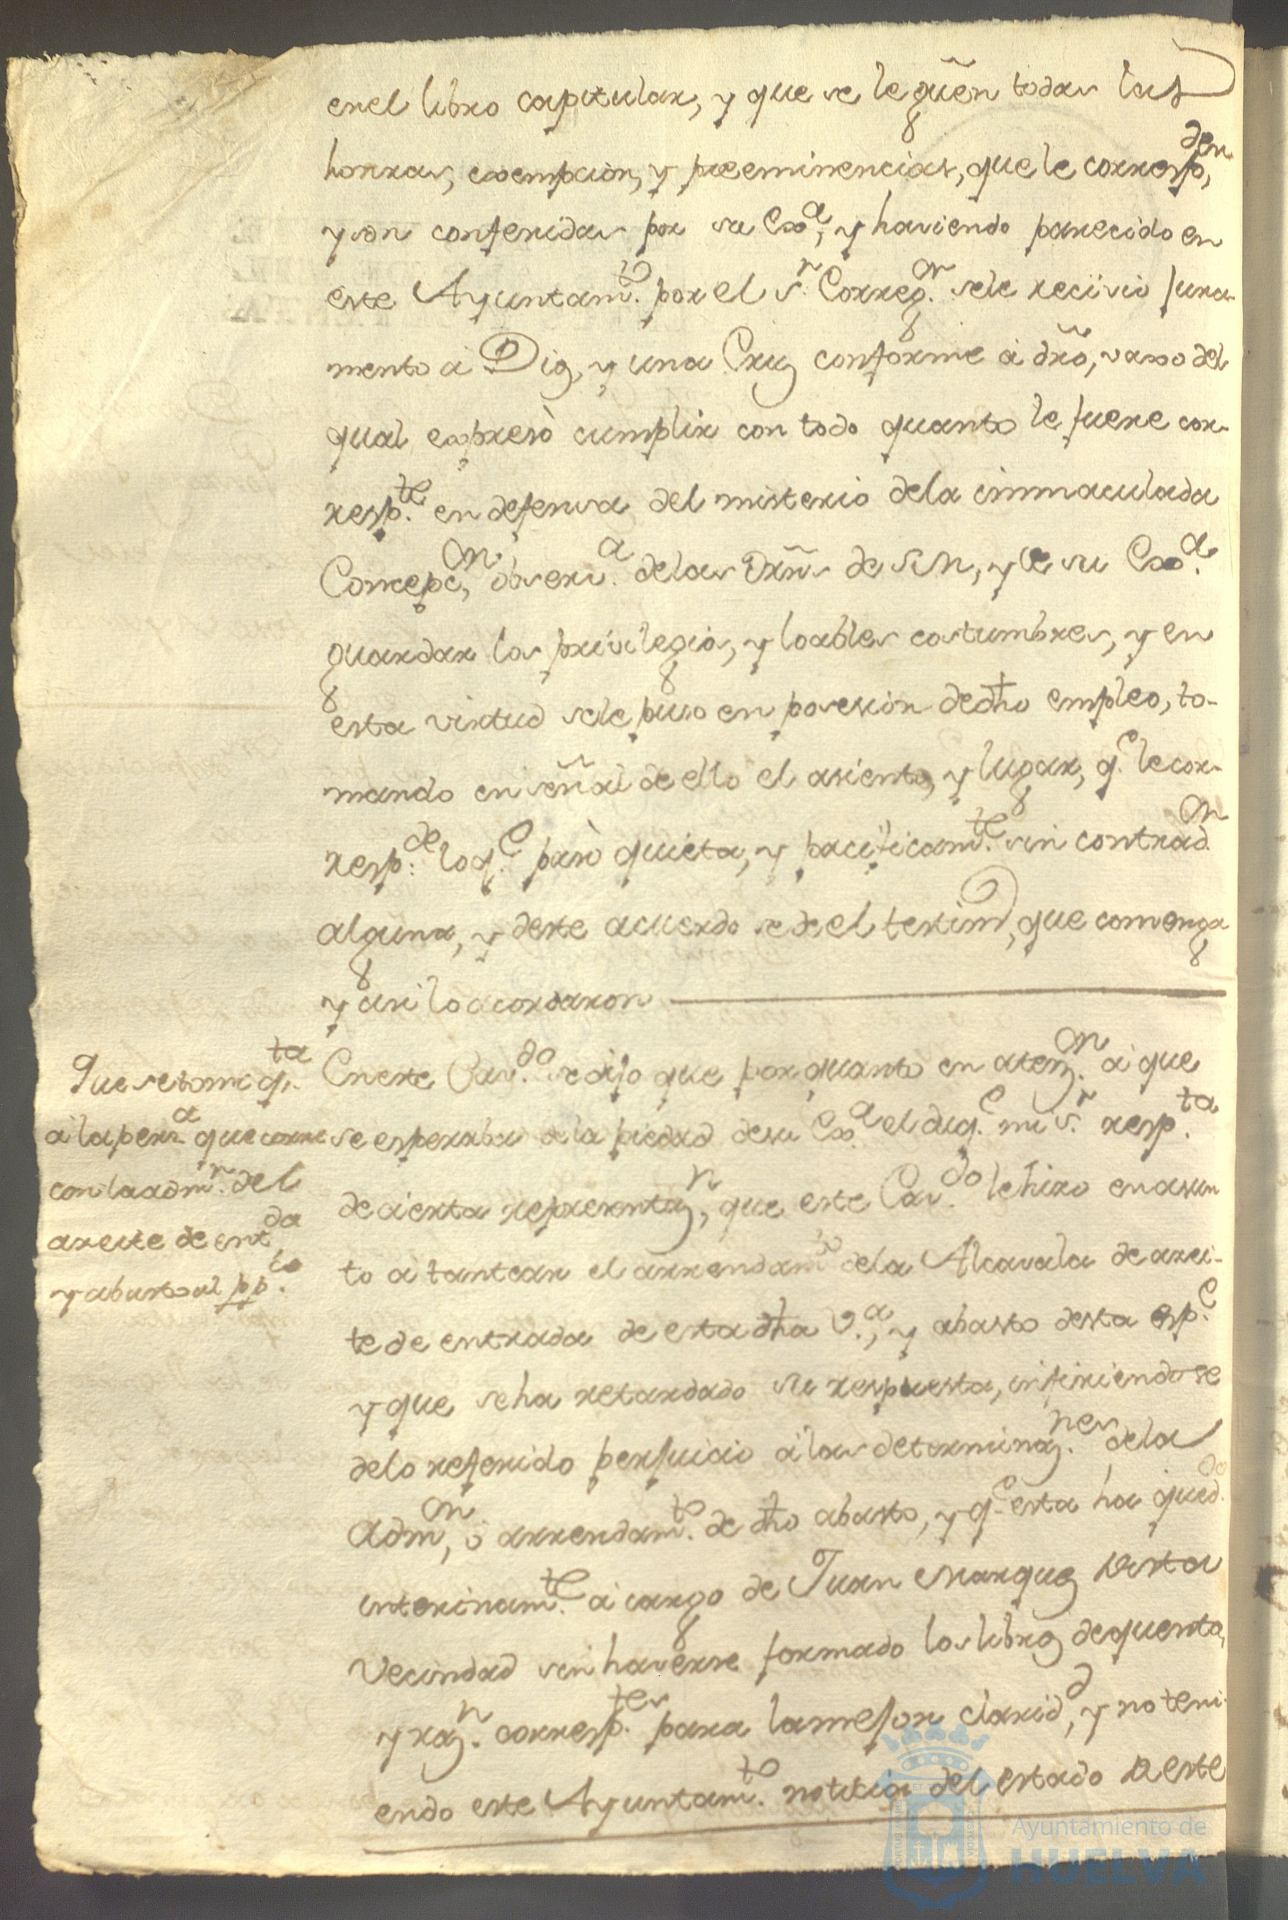 en el libro capitular, y que se le gũen todas las
honras, exempcion, y preeminencias, que le corresp.den
y son conferidas por su Exa, y haviendo parecido en
este Ayuntam.to por el s.r Correg.or sele recivio jura-
mento a Dios, y una Cruz conforme a dr̃o, vaxo del
qual expresò cumplir con todo quanto le fuere cor-
resp.te en defensa del misterio dela immaculada
Concepc.on observ.a delas Orñs de S.M, y de su Exa.
guardar los privilegios, y loables costumbres, y en
esta virtud sele puso en posesion de dho empleo, to-
mando en señal de ello el asiento, y lugar, q.e le cor-
resp.de lo q.e pasò quieta, y pacificam.te sin contrad.on
alguna, y deste acuerdo se de el testim.o, que comenga
y asi lo acordaron
Que se tome q.ta
a la pers.a que corre
con la adm.n del
aceite de ent.da
y abasto al pp.co
En este Cav.do se dijo que por quanto en atenz.on a que
se esperaba dela piedad de su Ex.a el duq.e mi s.r resp.ta
de cierta representaz.n, que este Cav.do le hizo en asun
to a tantear el arrendam.to dela Alcavala de acei-
te de entrada de esta dha V.a, y abasto desta esp.e
y que se ha retardado su respuesta, infiriendose
delo referido perjuicio a las determinaz.nes dela
Adm.on, ò arrendam.to de dho abasto, y q.e esta ha qued.do
interinam.te a cargo de Juan Marquez desta
Vecindad sin haverse formado los libros de quenta,
y raz.n corresp.tes para la mejor clarid.d, y no teni-
endo este Ayuntam.to noticia del estado deste
Ayuntamiento de
HUELVA